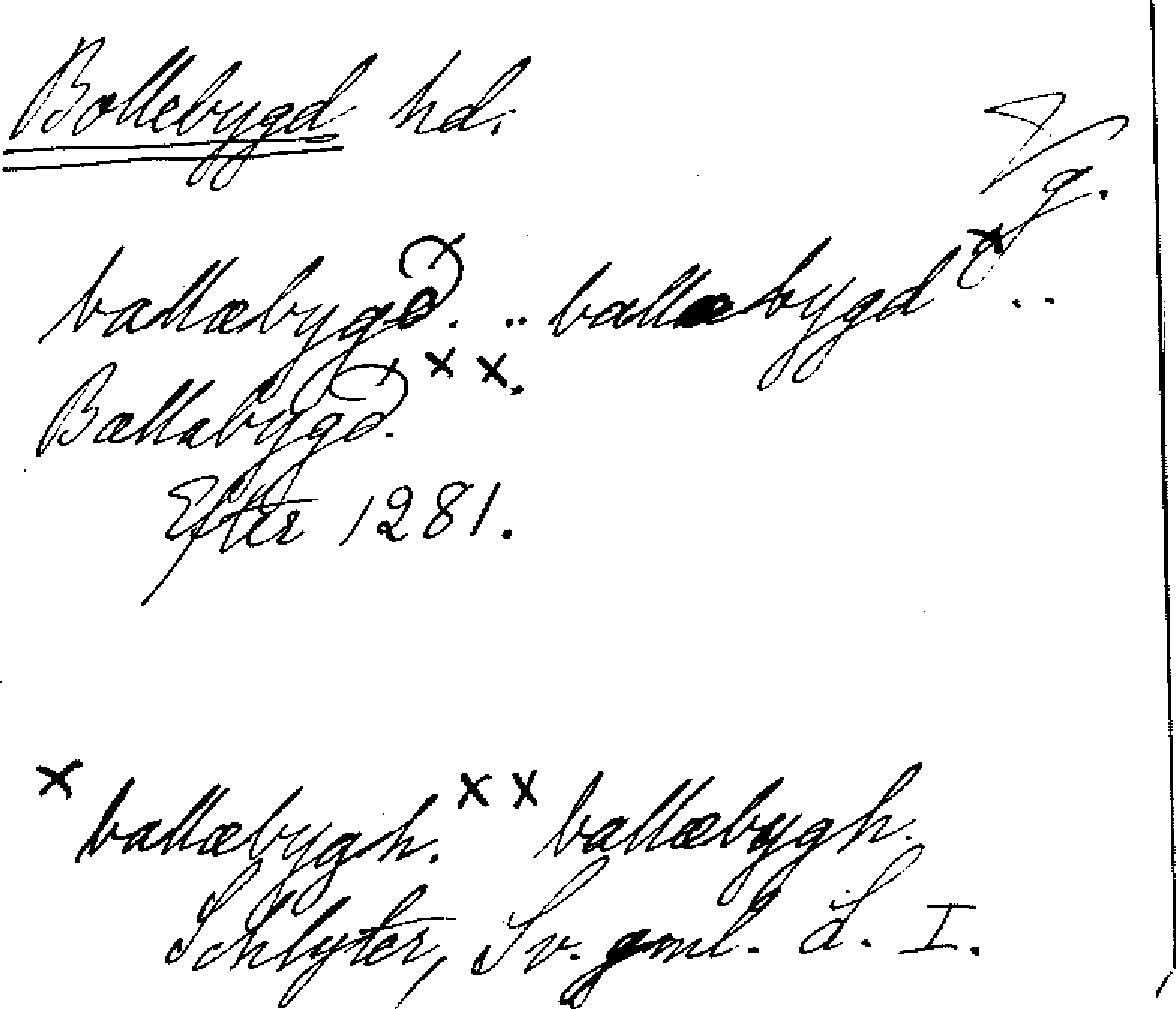 Bollebygd hd.
Vg.
ballæbygð. .. ballæbygd x ..
Ballabygð. x x.
Efter 1281.
x ballæbygh. x x ballæbygh.
Schlyter, Sv. gml. L. I.